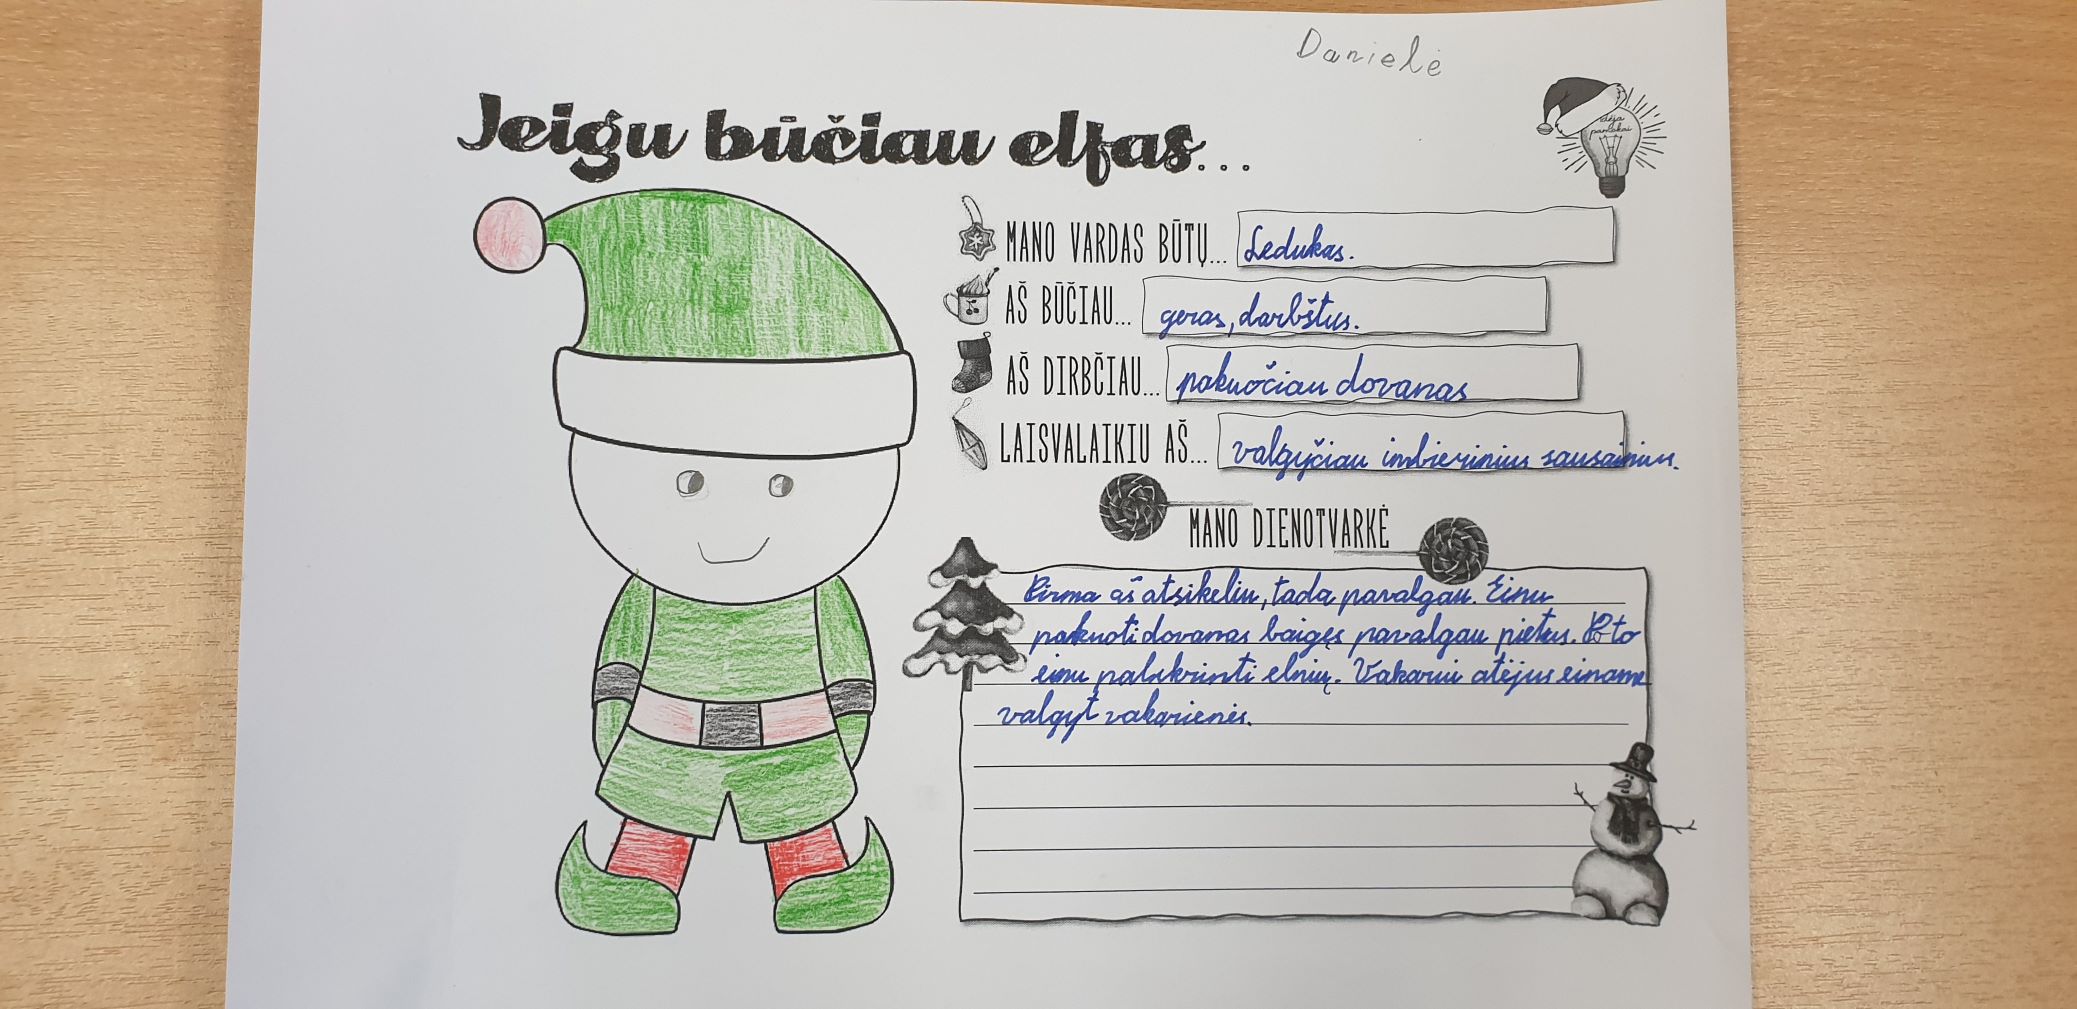 Danielė
Jeigu būčiau elfas...
idėja
pamokai
MANO VARDAS BŪTŲ... Ledukas.
AŠ BŪČIAU... geras, darbštus.
AŠ DIRBČIAU... pakuočiau dovanas
LAISVALAIKIU AŠ... valgyčiau imbierinius sausainius.
MANO DIENOTVARKĖ
Pirma aš atsikeliu, tada pavalgau. Einu
pakuoti dovanas baigęs pavalgau pietus. Po to
einu pašukrinti elnių. Vakarui atėjus einame
valgyt vakarienės.